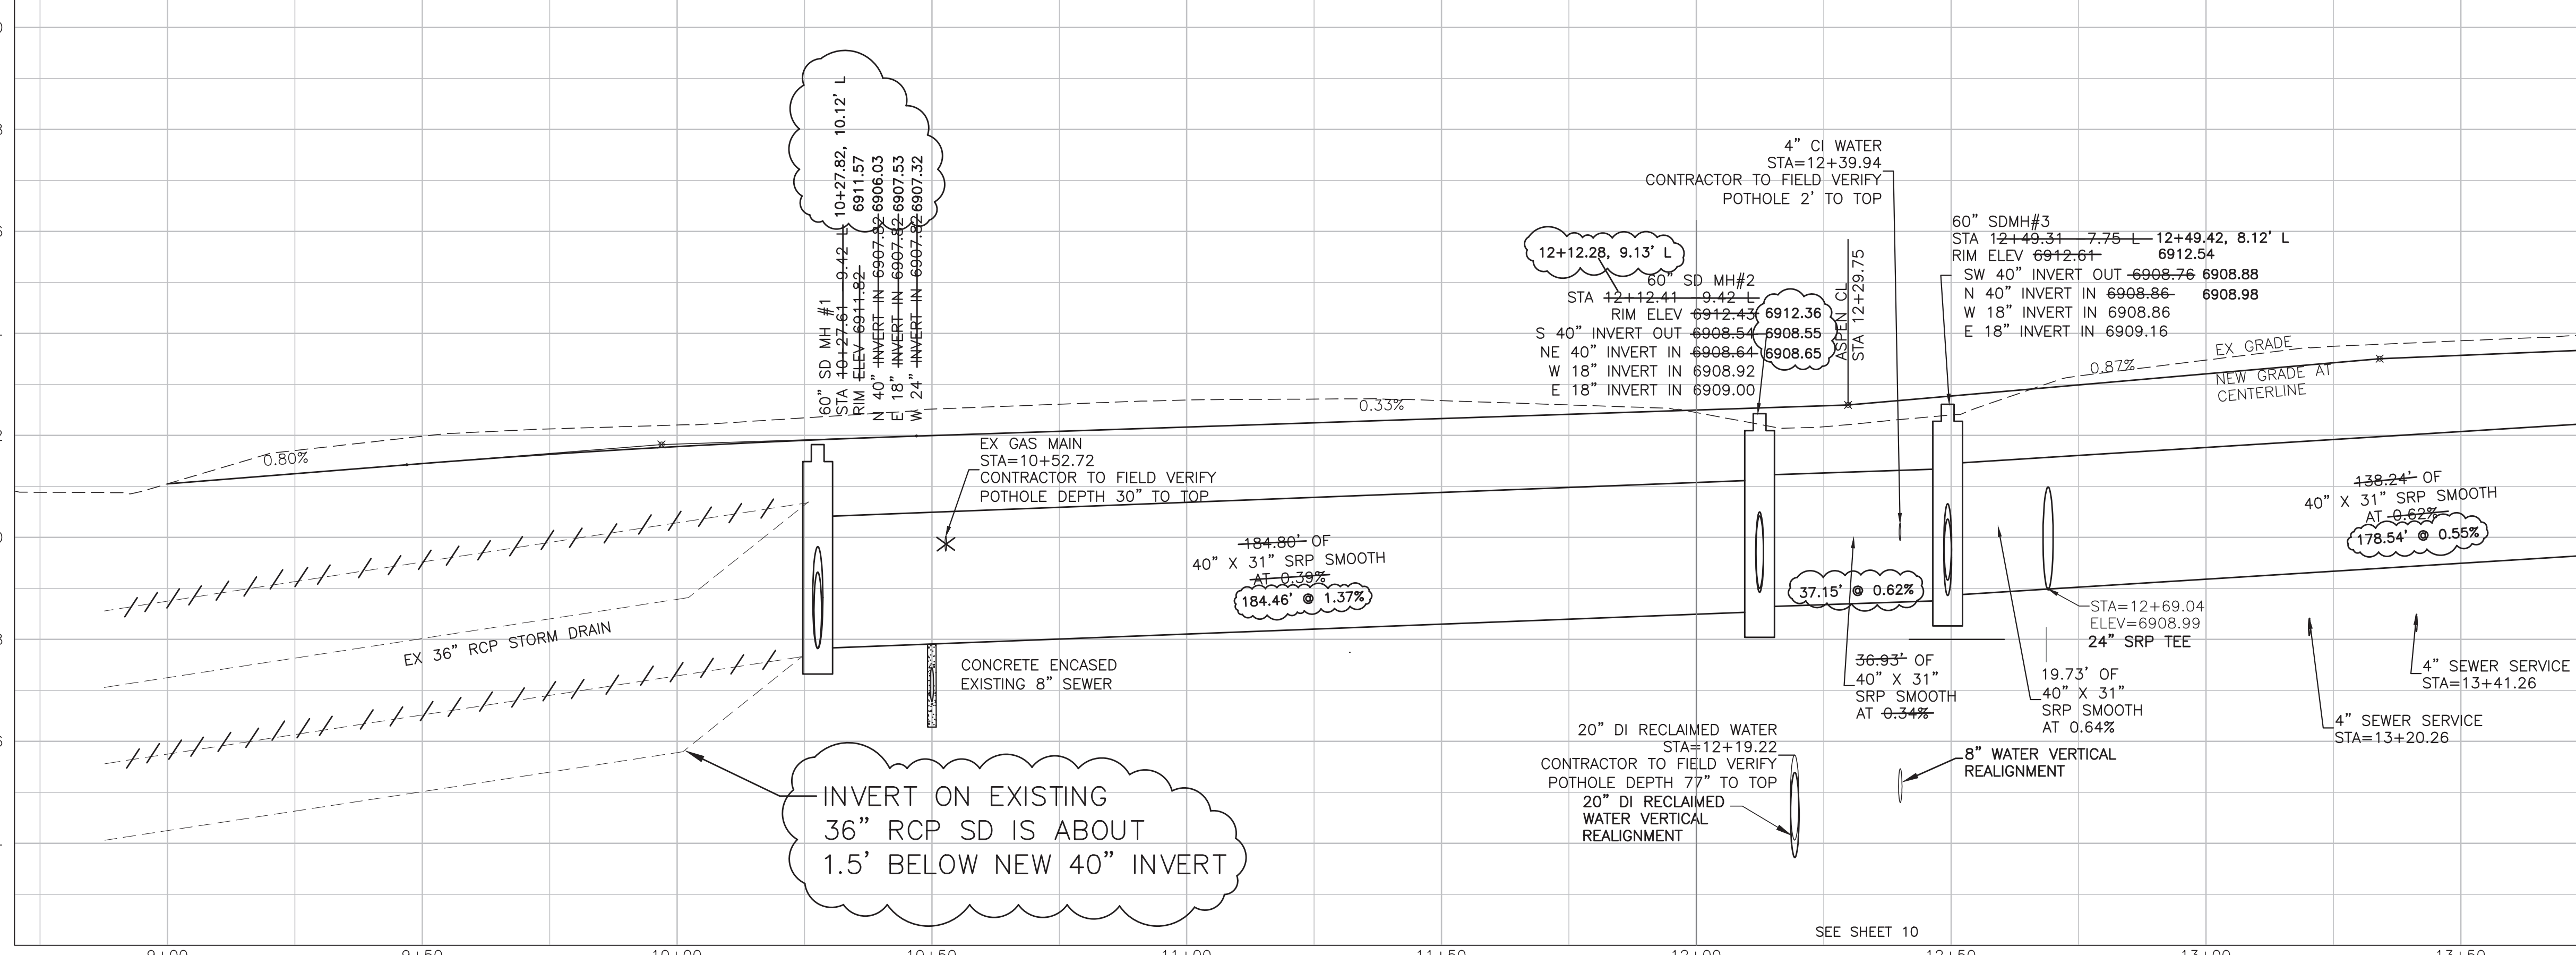 60" SD MH #1
STA 10+27.61 9.42 L 10+27.82, 10.12' L
RIM ELEV 6911.82 6911.57
N 40" INVERT IN 6907.82 6906.03
E 18" INVERT IN 6907.82 6907.53
W 24" INVERT IN 6907.82 6907.32
4" CI WATER
STA=12+39.94
CONTRACTOR TO FIELD VERIFY
POTHOLE 2' TO TOP
12+12.28, 9.13' L
60" SD MH#2
STA 12+12.41 9.42 L
RIM ELEV 6912.43 6912.36
S 40" INVERT OUT 6908.54 6908.55
NE 40" INVERT IN 6908.64 6908.65
W 18" INVERT IN 6908.92
E 18" INVERT IN 6909.00
ASPEN CL
STA 12+29.75
60" SDMH#3
STA 12+49.31 7.75 L 12+49.42, 8.12' L
RIM ELEV 6912.61 6912.54
SW 40" INVERT OUT 6908.76 6908.88
N 40" INVERT IN 6908.86 6908.98
W 18" INVERT IN 6908.86
E 18" INVERT IN 6909.16
EX GRADE
0.87%
NEW GRADE AT
CENTERLINE
0.33%
0.80%
EX GAS MAIN
STA=10+52.72
CONTRACTOR TO FIELD VERIFY
POTHOLE DEPTH 30" TO TOP
184.80' OF
40" X 31" SRP SMOOTH
AT 0.39%
184.46' @ 1.37%
138.24' OF
40" X 31" SRP SMOOTH
AT 0.62%
178.54' @ 0.55%
37.15' @ 0.62%
STA=12+69.04
ELEV=6908.99
24" SRP TEE
EX 36" RCP STORM DRAIN
CONCRETE ENCASED
EXISTING 8" SEWER
36.93' OF
40" X 31"
SRP SMOOTH
AT 0.34%
19.73' OF
40" X 31"
SRP SMOOTH
AT 0.64%
4" SEWER SERVICE
STA=13+41.26
4" SEWER SERVICE
STA=13+20.26
20" DI RECLAIMED WATER
STA=12+19.22
CONTRACTOR TO FIELD VERIFY
POTHOLE DEPTH 77" TO TOP
20" DI RECLAIMED
WATER VERTICAL
REALIGNMENT
8" WATER VERTICAL
REALIGNMENT
INVERT ON EXISTING
36" RCP SD IS ABOUT
1.5' BELOW NEW 40" INVERT
SEE SHEET 10
9+00 9+50 10+00 10+50 11+00 11+50 12+00 12+50 13+00 13+50